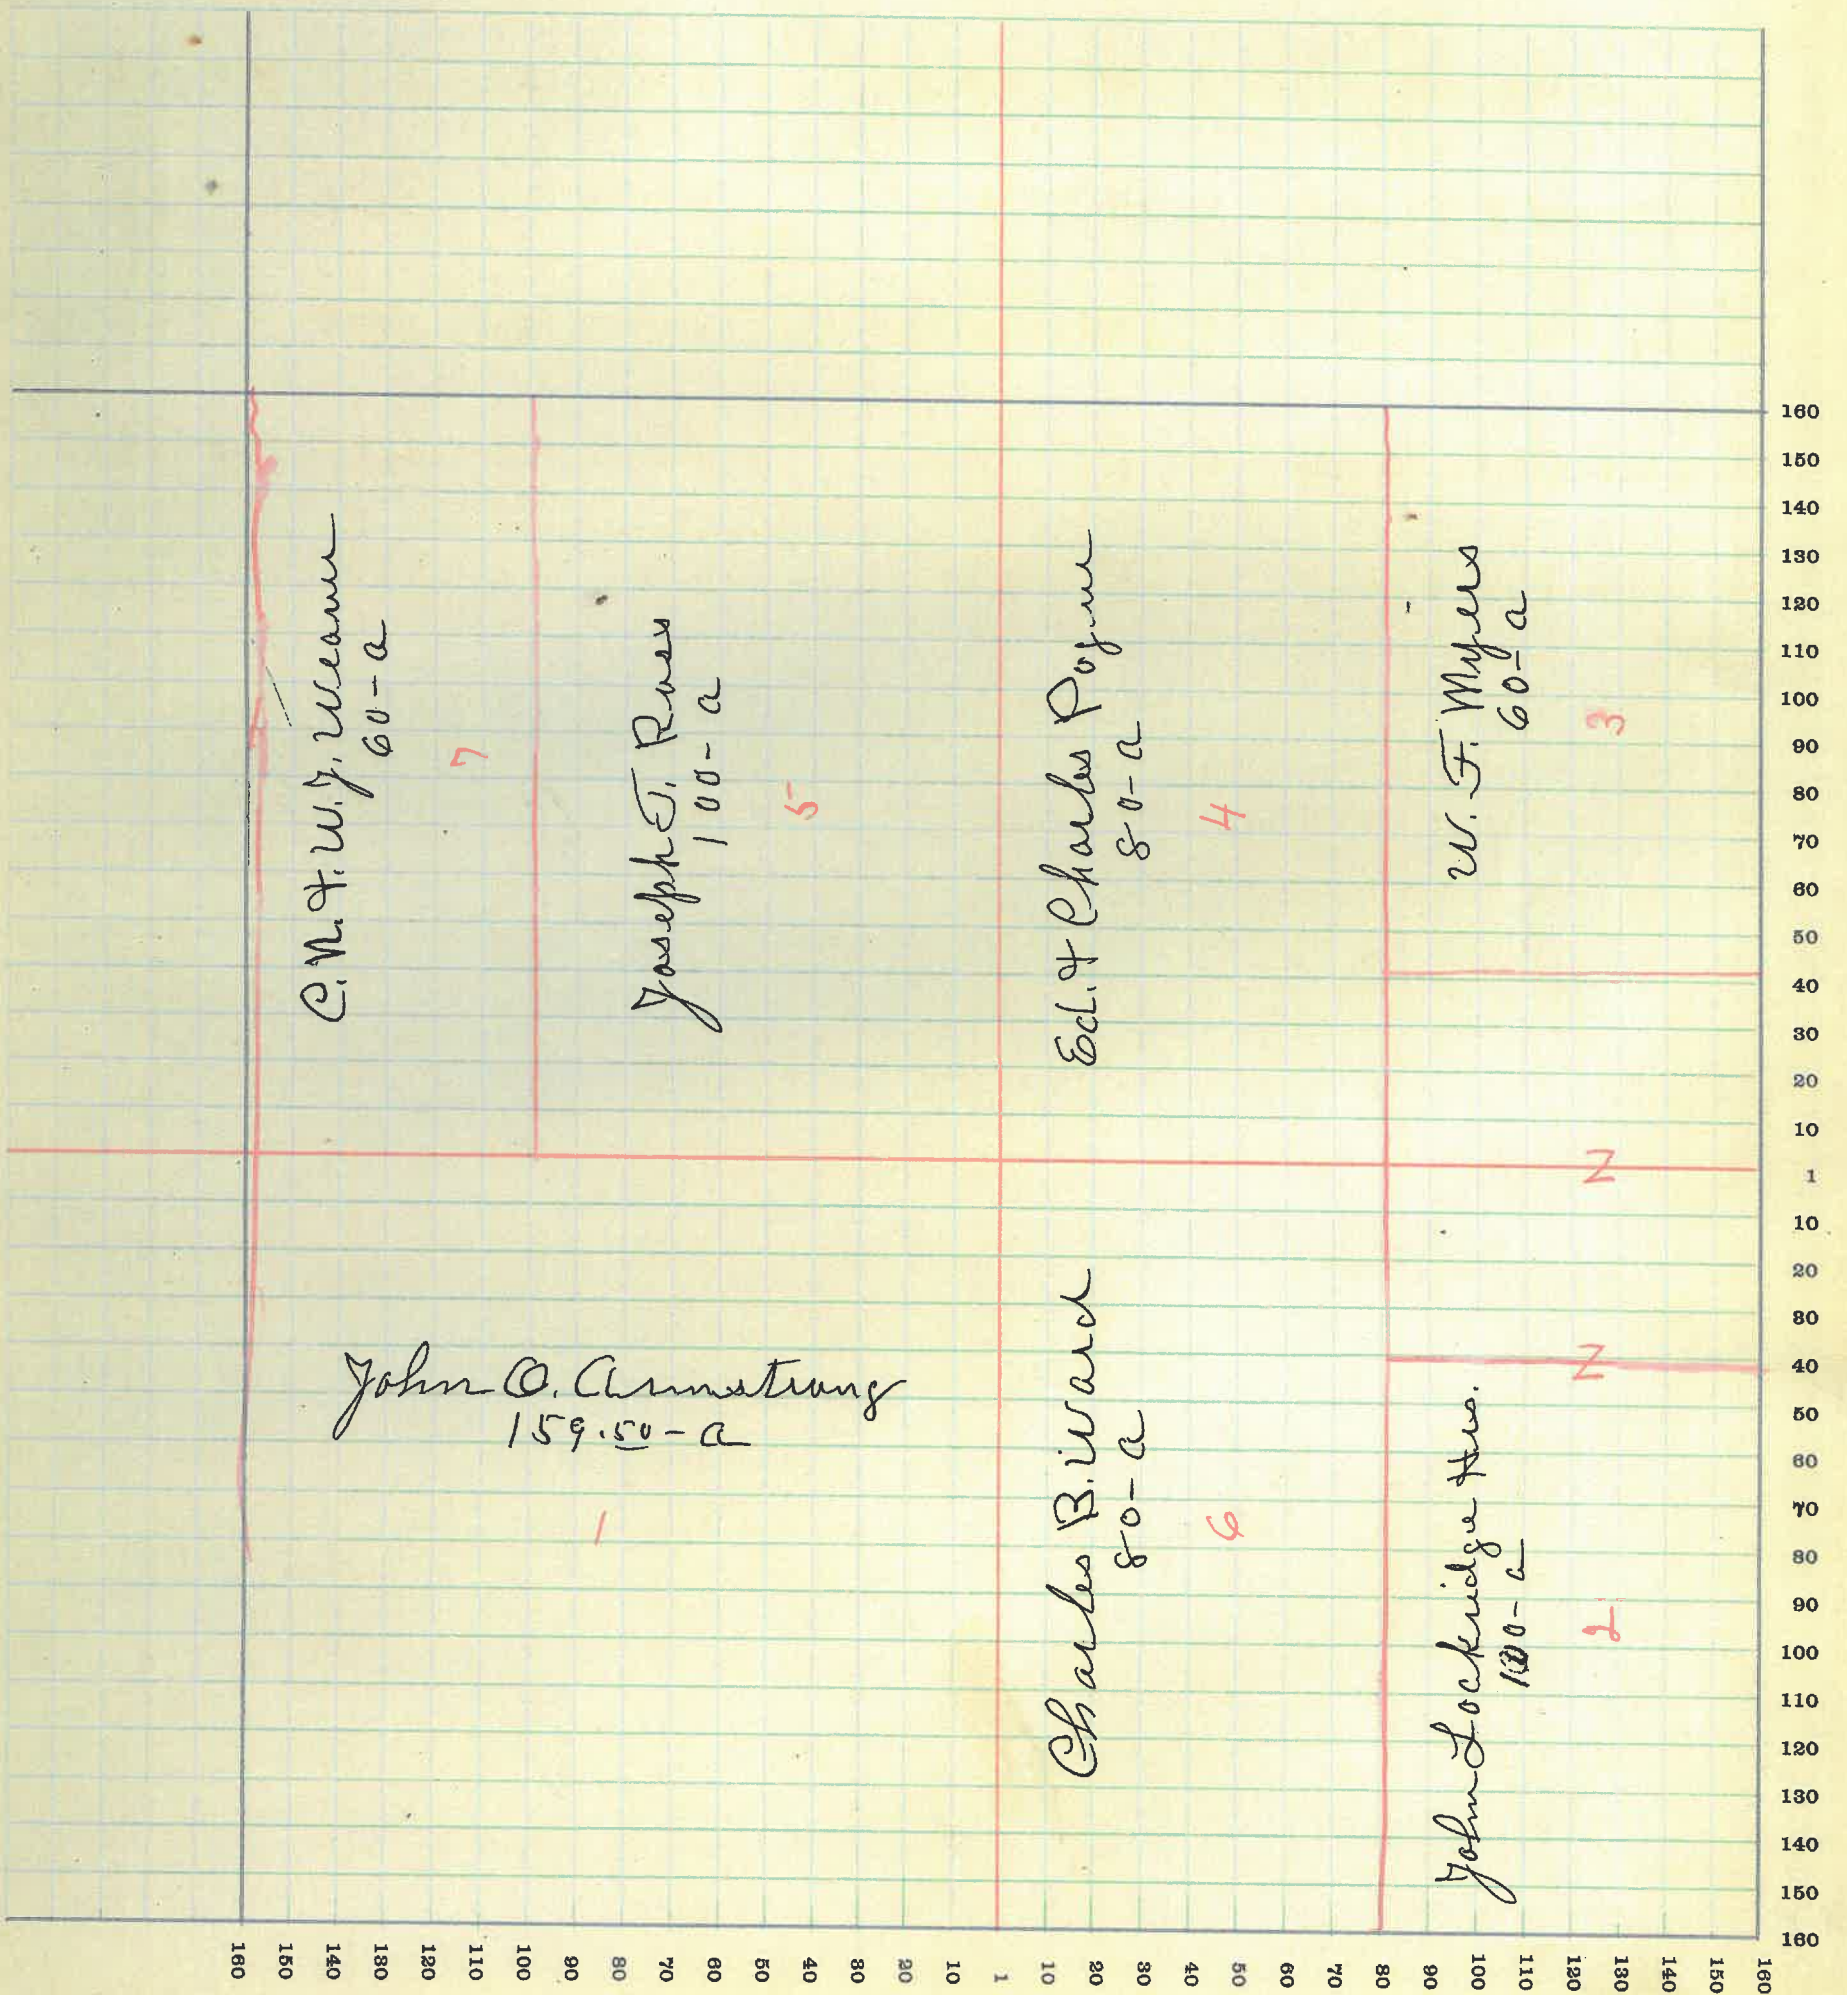 C. N. & W. J.
60 - a
7
Joseph T. Ross
100 - a
5
Ed. & Charles Pogue
80 - a
4
W. F. Myers
60 - a
3
John O. Armstrong
159.50 - a
1
Charles B. Ward
80 - a
6
John Lockridge Hrs.
100 - a
2
Z
Z
160
150
140
130
120
110
100
90
80
70
60
50
40
30
20
10
1
10
20
30
40
50
60
70
80
90
100
110
120
130
140
150
160
160 150 140 130 120 110 100 90 80 70 60 50 40 30 20 10 1 10 20 30 40 50 60 70 80 90 100 110 120 130 140 150 160